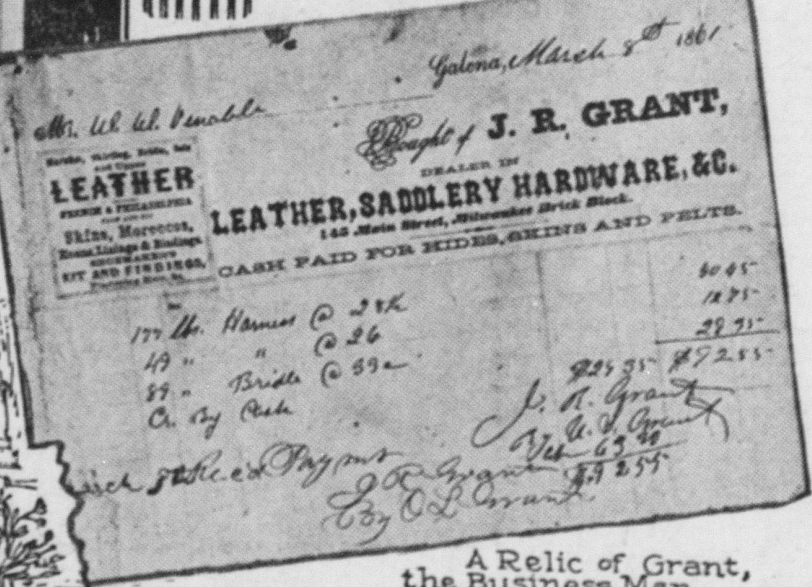 Galena, March 8th 1861
Mr. W. W. Venable
Bought of J. R. GRANT,
DEALER IN
LEATHER, SADDLERY HARDWARE, &C.
145 Main Street, Milwaukee Brick Block.
CASH PAID FOR HIDES, SKINS AND PELTS.
LEATHER
FRENCH & PHILADELPHIA
Skins, Moroccos,
Roans, Linings & Bindings,
SHOEMAKER'S
KIT AND FINDINGS,
177 lbs. Harness @ 28½
49 " " @ 26
89 " Bridle @ 33c
Cr. By Cash $29 35 $92 55
J. R. Grant
U. S. Grant
Rec'd Paymt
J R Grant $92 55
By O L Grant
A Relic of Grant,
the Business Man